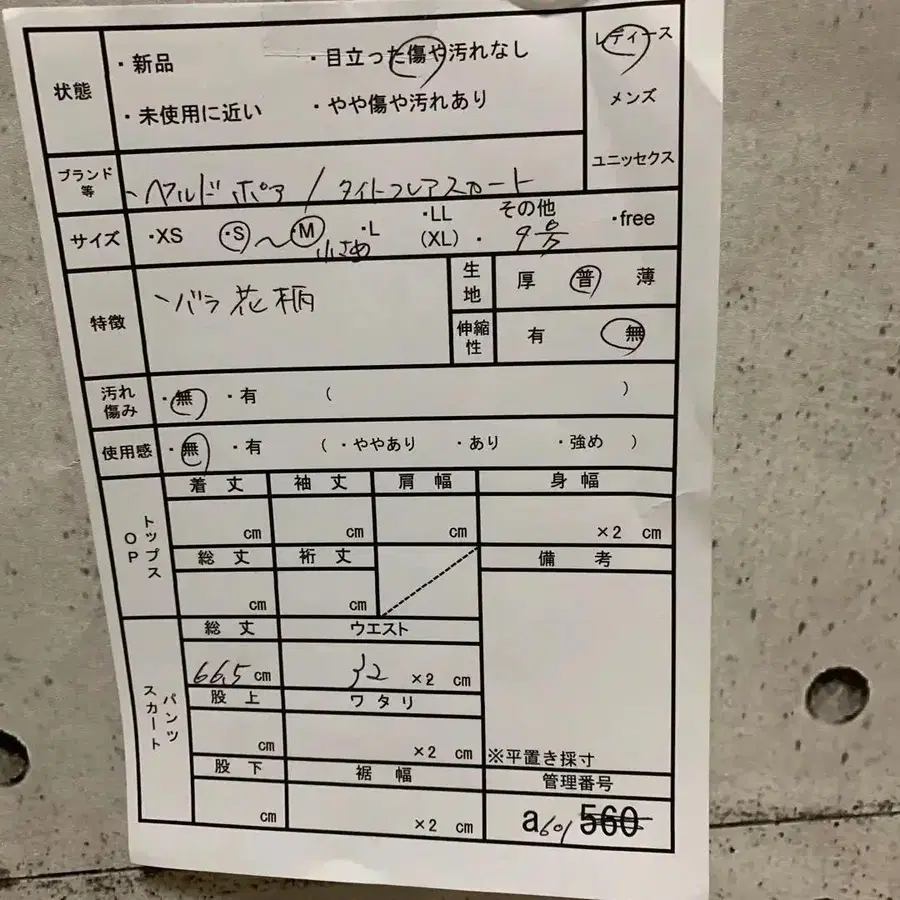 状態
・新品
・目立った傷や汚れなし
・未使用に近い
・やや傷や汚れあり
レディース
メンズ
ユニッセクス
ブランド等
タイトフレアスカート
サイズ
・XS ・S ～ ・M ・L ・LL (XL) ・ その他 9号 ・free
小さめ
特徴
バラ花柄
生地
厚 普 薄
伸縮性
有 無
汚れ傷み
・無 ・有 ( )
使用感
・無 ・有 ( ・ややあり ・あり ・強め )
トップス OP
着丈 袖丈 肩幅 身幅
cm cm cm ×2 cm
総丈 裄丈 備考
cm cm
パンツ スカート
総丈 ウエスト
66.5 cm 32 ×2 cm
股上 ワタリ
cm ×2 cm
※平置き採寸
股下 裾幅 管理番号
cm ×2 cm
a601 560